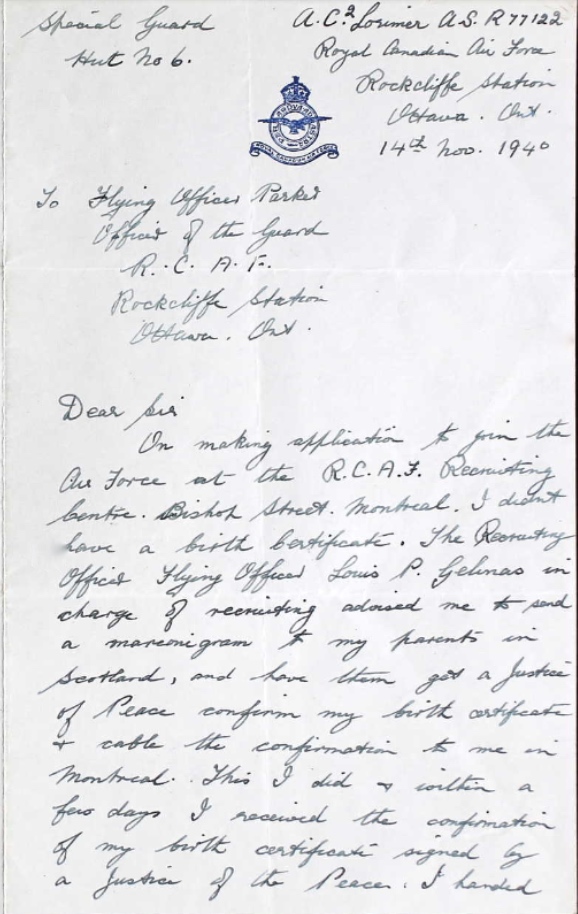 Special Guard
Hut No 6.
A.C.2 Lorimer A.S. R77122
Royal Canadian Air Force
Rockcliffe Station
Ottawa. Ont.
14th Nov. 1940
PER ARDUA AD ASTRA
ROYAL CANADIAN AIR FORCE
To Flying Officer Parker
Officer of the Guard
R.C.A.F.
Rockcliffe Station
Ottawa. Ont.
Dear Sir
On making application to join the
Air Force at the R.C.A.F. Recruiting
Centre. Bishop Street. Montreal. I didn't
have a birth Certificate. The Recruiting
Officer Flying Officer Louis P. Gelinas in
charge of recruiting advised me to send
a marconigram to my parents in
Scotland, and have them get a Justice
of Peace confirm my birth certificate
+ cable the confirmation to me in
Montreal. This I did + within a
few days I received the confirmation
of my birth certificate signed by
a Justice of the Peace. I handed